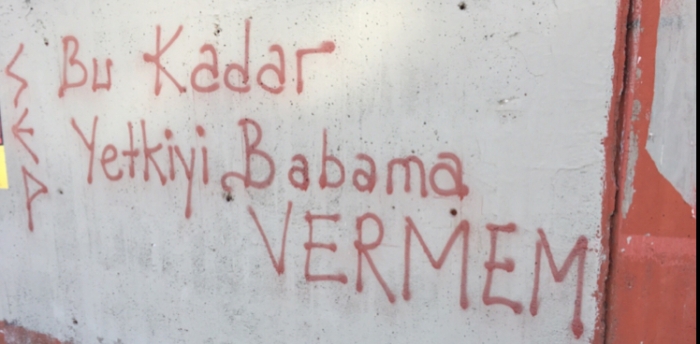 Bu Kadar
Yetkiyi Babama
VERMEM